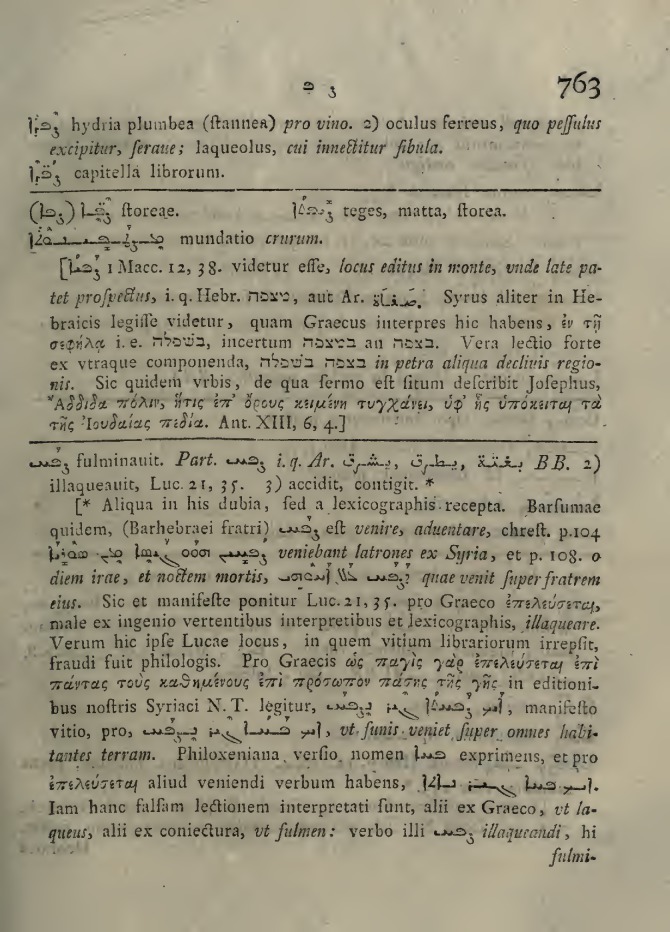 763
hydria plumbea (ſtannea) pro vino. 2) oculus ferreus, quo peſſulus
excipitur, ſeraue; laqueolus, cui innectitur fibula.
capitella librorum.
ſtoreae. teges, matta, ſtorea.
mundatio crurum.
1 Macc. 12, 38. videtur eſſe, locus editus in monte, vnde late pa-
tet proſpectus, i. q. Hebr. מצפה, aut Ar. Syrus aliter in He-
braicis legiſſe videtur, quam Graecus interpres hic habens, ἐν τῇ
σεφήλᾳ i. e. בשפלה, incertum במצפה an בצפה. Vera lectio forte
ex vtraque componenda, בצפה בשפלה in petra aliqua declivis regio-
nis. Sic quidem vrbis, de qua ſermo eſt ſitum deſcribit Joſephus,
Ἄδδιδα πόλιν, ἥτις ἐπ' ὄρους κειμένη τυγχάνει, ὑφ' ἧς ὑπόκειται τὰ
τῆς Ἰουδαίας πεδία. Ant. XIII, 6, 4.]
fulminauit. Part. i. q. Ar. BB. 2)
illaqueauit, Luc. 21, 35. 3) accidit, contigit. *
[* Aliqua in his dubia, ſed a lexicographis recepta. Barſumae
quidem, (Barhebraei fratri) eſt venire, aduentare, chreſt. p. 104
veniebant latrones ex Syria, et p. 108. o
diem irae, et noctem mortis, quae venit ſuper fratrem
eius. Sic et manifeſte ponitur Luc. 21, 35. pro Graeco ἐπελεύσεται,
male ex ingenio vertentibus interpretibus et lexicographis, illaqueare.
Verum hic ipſe Lucae locus, in quem vitium librariorum irrepſit,
fraudi fuit philologis. Pro Graecis ὡς παγὶς γὰρ ἐπελεύσεται ἐπὶ
πάντας τοὺς καθημένους ἐπὶ πρόσωπον πάσης τῆς γῆς in editioni-
bus noſtris Syriaci N. T. legitur, manifeſto
vitio, pro, vt funis veniet ſuper omnes habi-
tantes terram. Philoxeniana verſio nomen exprimens, et pro
ἐπελεύσεται aliud veniendi verbum habens,
Iam hanc falſam lectionem interpretati ſunt, alii ex Graeco, vt la-
queus, alii ex coniectura, vt fulmen: verbo illi illaqueandi, hi
fulmi-